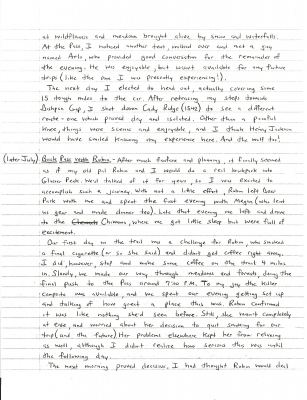 of wildflowers and meadows brought alive by snow and waterfalls.
At the Pass, I noticed another tent walked over and met a guy
named Arlo, who provided good conversation for the remainder of
the evening. He was enjoyable, but wasn't available for any future
trips (like the one I was presently experiencing!).
The next day I elected to head out, actually covering some
15 tough miles to the car. After retracing my steps towards
Dolphin Gap, I shot down Cady Ridge (1542) to see a different
route - one which proved dry and isolated. Other than a painful
knee, things were scenic and enjoyable, and I think Heinz Jackson
would have smiled knowing my experience here. And the mutt too!
(later July) Buck Pass with Robin - After much posture and planning, it finally seemed
as if my old pal Robin and I would do a real backpack into
Glacier Peak. We'd talked of it for years, so I was elated to
accomplish such a journey. With not a little effort, Robin left Deer
Park with me and spent the first evening with Megan (who lent
us gear and made dinner too). Late that evening we left and drove
to the Chiwawa, where we got little sleep but were full of
excitement.
Our first day on the trail was a challenge for Robin, who smoked
a final cigarette (or so she said) and didn't get coffee right away.
I did, however, stop and make some coffee on the trail 4 miles
in. Slowly, we made our way through meadows and forests, doing the
final push to the Pass around 7:30 P.M. To my joy the killer
campsite was available, and we spent our evening getting set up
and talking of how great a place this was. Robin confirmed
it was like nothing she'd seen before. Still, she wasn't completely
at ease and worried about her decision to quit smoking for our
trip (and the future). Her problems elsewhere kept her from relaxing
as well, although I didn't realize how serious this was until
the following day.
The next morning proved decisive. I had thought Robin would deal